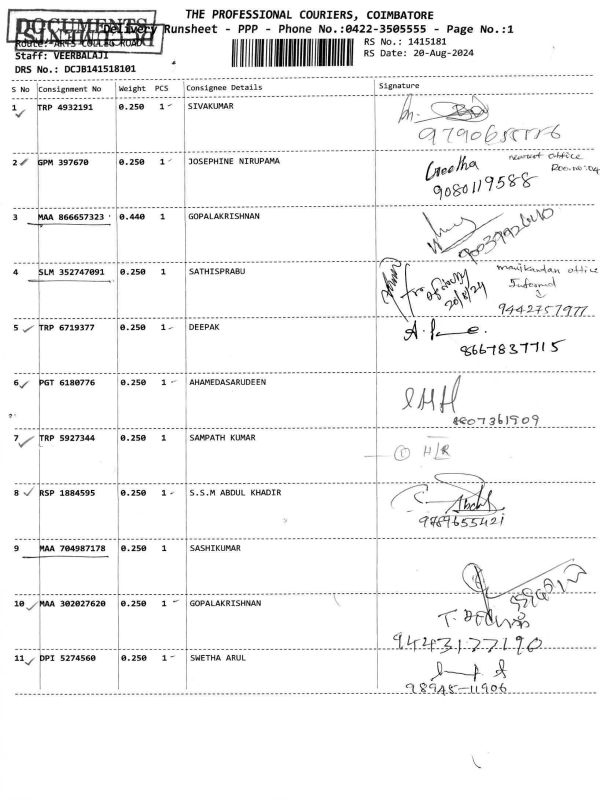 THE PROFESSIONAL COURIERS, COIMBATORE
DOCUMENTS
Delivery Runsheet - PPP - Phone No.:0422-3505555 - Page No.:1
Route: ARTS COLLEG ROAD
RS No.: 1415181
Staff: VEERBALAJI
RS Date: 20-Aug-2024
DRS No.: DCJB141518101
S No Consignment No Weight PCS Consignee Details Signature
1 TRP 4932191 0.250 1 SIVAKUMAR
2 GPM 397670 0.250 1 JOSEPHINE NIRUPAMA Geetha
9080119588
3 MAA 866657323 0.440 1 GOPALAKRISHNAN
4 SLM 352747091 0.250 1 SATHISPRABU manikandan office
Informed
20/8/24
9442757977
5 TRP 6719377 0.250 1 DEEPAK
8667837715
6 PGT 6180776 0.250 1 AHAMEDASARUDEEN
8807361909
7 TRP 5927344 0.250 1 SAMPATH KUMAR
① H/R
8 RSP 1884595 0.250 1 S.S.M ABDUL KHADIR
9789655421
9 MAA 704987178 0.250 1 SASHIKUMAR
10 MAA 302027620 0.250 1 GOPALAKRISHNAN
9443177190
11 DPI 5274560 0.250 1 SWETHA ARUL
98945-11906